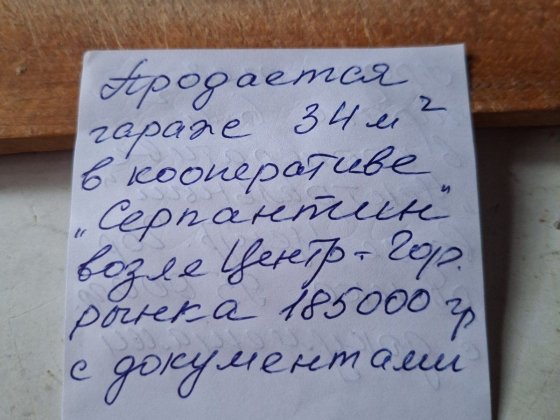 Продается
гараже 34 м²
в кооперативе
"Серпантин"
возле Центр. Гор.
рынка 185000 гр
с документами